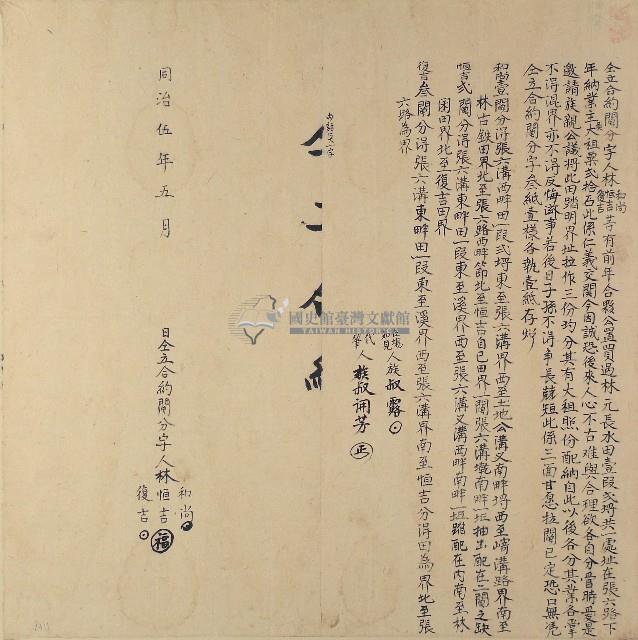 仝立合約鬮分字人林和尚恒吉復吉等有前年合夥公置買過林元長水田壹段弍坵共一處址在張六路下
年納業主大租粟弍拾石此係仁義交関今因誠恐後來人心不古难與合理欲各自分管時爰是
邀請族親公議將此田踏明界址拉作三份均分其有大租照份配納自此以後各分其業各掌
不得混界亦不得反悔滋事若後日子孫不得爭長競短此係三面甘愿拉鬮已定恐口無憑
仝立合約鬮分字叁紙壹樣各執壹紙存炤
和尚壹鬮分得張六溝西畔田一段弍坵東至張六溝界西至土地公溝又南畔坵西至溝路界南至
林古鉄田界北至張六路西畔節北至恒吉自己田界一鬮張六溝墘南畔一坵抽出配在二鬮之缺
恒吉弍鬮分得張六溝東畔田一段東至溪界西至張六溝又溝西畔南畔一坵踏配在内南至林
困田界北至復吉田界
復吉叁鬮分得張六溝東畔田一段東至溪界西至張六溝界南至恒吉分得田為界北至張
六路為界
在場知見人族叔露
代筆人族叔誦芳 正
國史館臺灣文獻館
TAIWAN HISTORICA
同治伍年五月
日仝立合約鬮分字人林和尚恒吉復吉
福